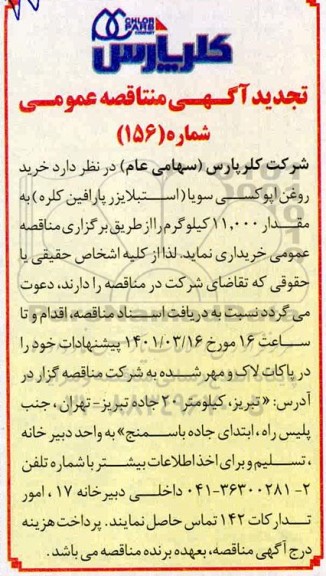 CHLOR PARS
کلر پارس
تجدید آگهی منتاقصه عمومی
شماره (۱۵۶)
شرکت کلر پارس (سهامی عام) در نظر دارد خرید
روغن اپوکسی سویا (استبلایزر پارافین کلره) به
مقدار ۱۱,۰۰۰ کیلوگرم را از طریق برگزاری مناقصه
عمومی خریداری نماید. لذا از کلیه اشخاص حقیقی یا
حقوقی که تقاضای شرکت در مناقصه را دارند، دعوت
می گردد نسبت به دریافت اسناد مناقصه، اقدام و تا
ساعت ۱۶ مورخ ۱۴۰۱/۰۳/۱۶ پیشنهادات خود را
در پاکات لاک و مهر شده به شرکت مناقصه گزار در
آدرس: «تبریز، کیلومتر ۲۰ جاده تبریز - تهران، جنب
پلیس راه، ابتدای جاده باسمنج» به واحد دبیر خانه
، تسلیم و برای اخذ اطلاعات بیشتر با شماره تلفن
۲-۰۴۱-۳۶۳۰۰۲۸۱ داخلی دبیرخانه ۱۷، امور
تدارکات ۱۴۲ تماس حاصل نمایند. پرداخت هزینه
درج آگهی مناقصه، بعهده برنده مناقصه می باشد.